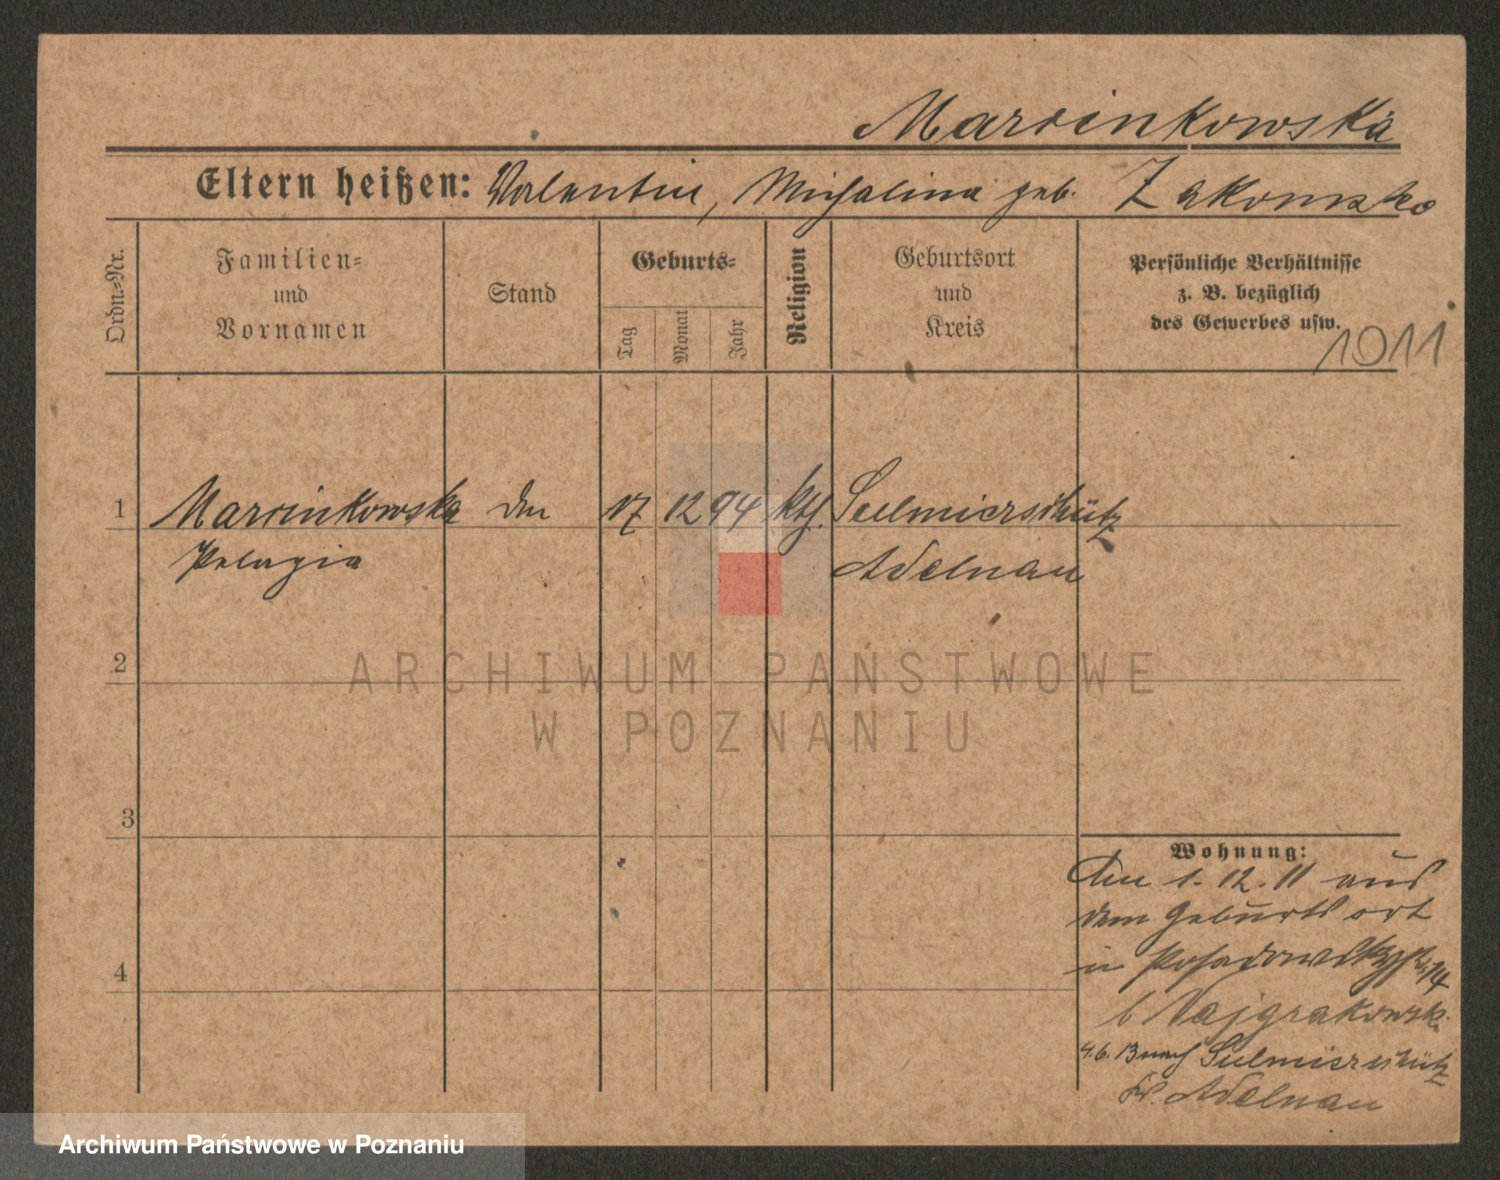 Marcinkowska
Eltern heißen: Valentin, Michalina geb.
Ordn.-Nr.
Familien-
und
Vornamen
Stand
Geburts-
Tag
Monat
Jahr
Religion
Geburtsort
und
Kreis
Persönliche Verhältnisse
z. B. bezüglich
des Gewerbes usw.
1011
1 Marcinkowska 17 12 94 kth. Sulmierschütz
Pelagia Adelnau
2
ARCHIWUM PAŃSTWOWE
W POZNANIU
3
Wohnung:
den 1. 12. 11 aus
dem Geburtsort
in
b
4
4.6.13 nach Sulmierschütz
Kr. Adelnau
Archiwum Państwowe w Poznaniu